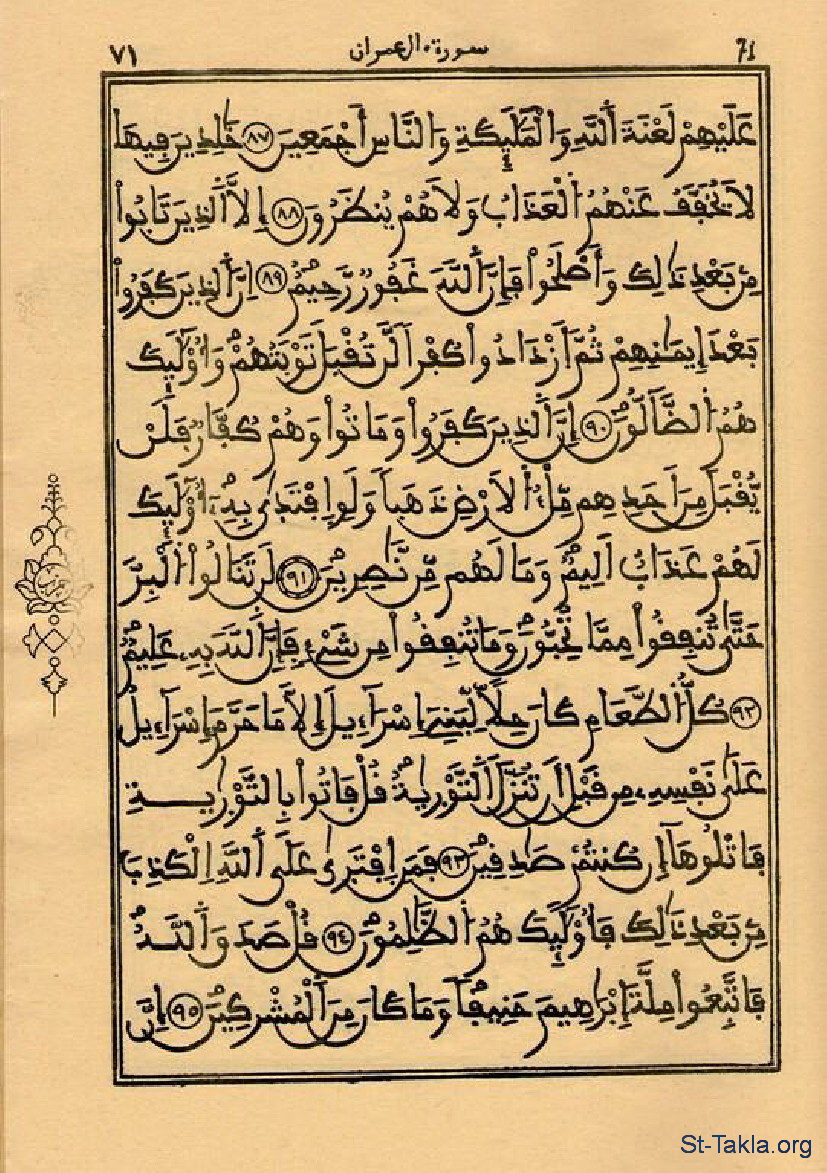 ٧١ سورة ءال عمران 71
عَلَيْهِمْ لَعْنَةَ اَ۬للَّهِ وَالْمَلَٰٓئِكَةِ وَالنَّاسِ أَجْمَعِينَ ٨٧ خَٰلِدِينَ فِيهَا
لَا يُخَفَّفُ عَنْهُمُ اُ۬لْعَذَابُ وَلَا هُمْ يُنظَرُونَ ٨٨ إِلَّا اَ۬لذِينَ تَابُواْ
مِنۢ بَعْدِ ذَٰلِكَ وَأَصْلَحُواْ فَإِنَّ اَ۬للَّهَ غَفُورٞ رَّحِيمٌ ٨٩ اِنَّ اَ۬لذِينَ كَفَرُواْ
بَعْدَ إِيمَٰنِهِمْ ثُمَّ اَ۪زْدَادُواْ كُفْراٗ لَّن تُقْبَلَ تَوْبَتُهُمْ وَأُوْلَٰٓئِكَ
هُمُ اُ۬لضَّآلُّونَ ٩٠ إِنَّ اَ۬لذِينَ كَفَرُواْ وَمَاتُواْ وَهُمْ كُفَّارٞ فَلَنْ
يُّقْبَلَ مِنَ اَحَدِهِم مِّلْءُ اُ۬لَارْضِ ذَهَباٗ وَلَوِ اِ۪فْتَدَىٰ بِهِۦٓ أُوْلَٰٓئِكَ
لَهُمْ عَذَابٌ اَلِيمٞ وَمَا لَهُم مِّن نَّٰصِرِينَ ٩١ لَن تَنَالُواْ اُ۬لْبِرَّ
حَتَّىٰ تُنفِقُواْ مِمَّا تُحِبُّونَ وَمَا تُنفِقُواْ مِن شَےْءٖ فَإِنَّ اَ۬للَّهَ بِهِۦ عَلِيمٞ
٩٢ كُلُّ اُ۬لطَّعَامِ كَانَ حِلّاٗ لِّبَنِےٓ إِسْرَآءِيلَ إِلَّا مَا حَرَّمَ إِسْرَآءِيلُ
عَلَىٰ نَفْسِهِۦ مِن قَبْلِ أَن تُنَزَّلَ اَ۬لتَّوْرَىٰةُ قُلْ فَاتُواْ بِالتَّوْرَىٰةِ
فَاتْلُوهَآ إِن كُنتُمْ صَٰدِقِينَ ٩٣ فَمَنِ اِ۪فْتَرَىٰ عَلَى اَ۬للَّهِ اِ۬لْكَذِبَ
مِنۢ بَعْدِ ذَٰلِكَ فَأُوْلَٰٓئِكَ هُمُ اُ۬لظَّٰلِمُونَ ٩٤ قُلْ صَدَقَ اَ۬للَّهُ
فَاتَّبِعُواْ مِلَّةَ إِبْرَٰهِيمَ حَنِيفاٗ وَمَا كَانَ مِنَ اَ۬لْمُشْرِكِينَ ٩٥ إِنَّ
حزب
St-Takla.org